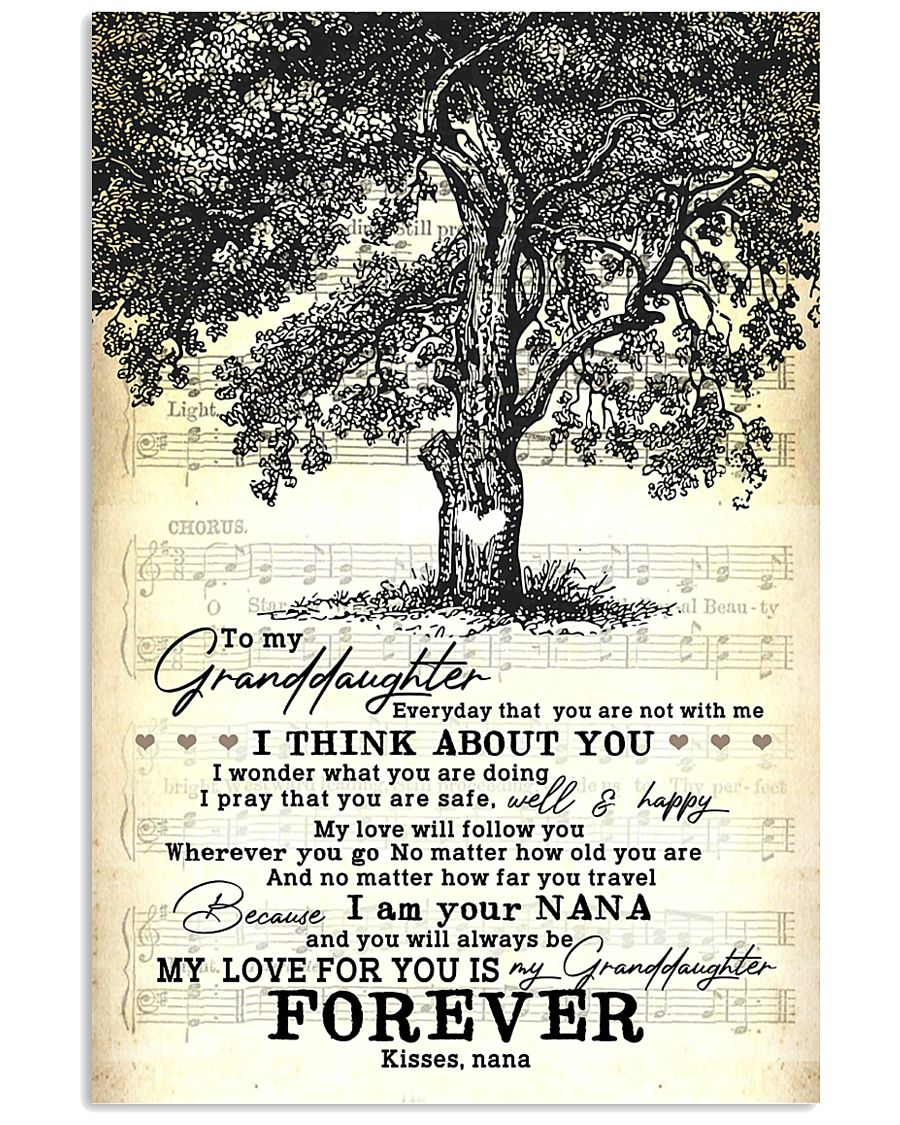 Still
Light.
CHORUS.
O Star al Beau-ty
To my
Granddaughter
Everyday that you are not with me
I THINK ABOUT YOU
I wonder what you are doing
bright, Westward leading, Still proceeding, to Thy per-fect
I pray that you are safe, well & happy
My love will follow you
Wherever you go No matter how old you are
And no matter how far you travel
Because I am your NANA
and you will always be
MY LOVE FOR YOU IS my Granddaughter
FOREVER
Kisses, nana